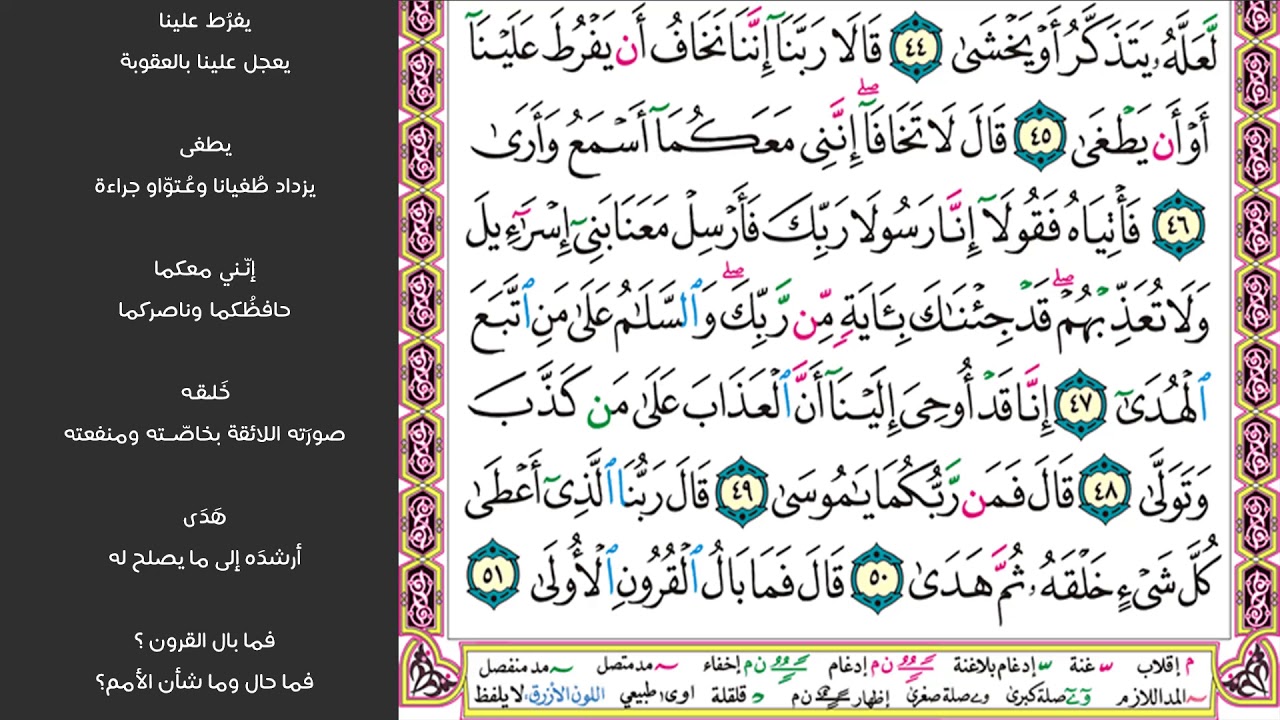 لَّعَلَّهُۥ يَتَذَكَّرُ أَوْ يَخْشَىٰ ٤٤ قَالَا رَبَّنَآ إِنَّنَا نَخَافُ أَن يَفْرُطَ عَلَيْنَآ
أَوْ أَن يَطْغَىٰ ٤٥ قَالَ لَا تَخَافَآ ۖ إِنَّنِى مَعَكُمَآ أَسْمَعُ وَأَرَىٰ
٤٦ فَأْتِيَاهُ فَقُولَآ إِنَّا رَسُولَا رَبِّكَ فَأَرْسِلْ مَعَنَا بَنِىٓ إِسْرَٰٓءِيلَ
وَلَا تُعَذِّبْهُمْ ۖ قَدْ جِئْنَٰكَ بِـَٔايَةٍ مِّن رَّبِّكَ ۖ وَٱلسَّلَٰمُ عَلَىٰ مَنِ ٱتَّبَعَ
ٱلْهُدَىٰٓ ٤٧ إِنَّا قَدْ أُوحِىَ إِلَيْنَآ أَنَّ ٱلْعَذَابَ عَلَىٰ مَن كَذَّبَ
وَتَوَلَّىٰ ٤٨ قَالَ فَمَن رَّبُّكُمَا يَٰمُوسَىٰ ٤٩ قَالَ رَبُّنَا ٱلَّذِىٓ أَعْطَىٰ
كُلَّ شَىْءٍ خَلْقَهُۥ ثُمَّ هَدَىٰ ٥٠ قَالَ فَمَا بَالُ ٱلْقُرُونِ ٱلْأُولَىٰ ٥١
م إقلاب س غنة س إدغام بلاغنة ن م إدغام ن م إخفاء ~ مد متصل ~ مد منفصل
~ المد اللازم و ے صلة كبرى و ے صلة صغرى إظهار ن م د قلقلة اوى طبيعي اللون الأزرق: لا يلفظ
يفرُط علينا
يعجل علينا بالعقوبة
يطغى
يزداد طُغيانا وعُـتوّاو جراءة
إنّـني معكما
حافظُكما وناصركما
خَلقـه
صورَته اللائقة بخاصّـته ومنفعته
هَدَى
أرشدَه إلى ما يصلح له
فما بال القرون ؟
فما حال وما شأن الأمم؟